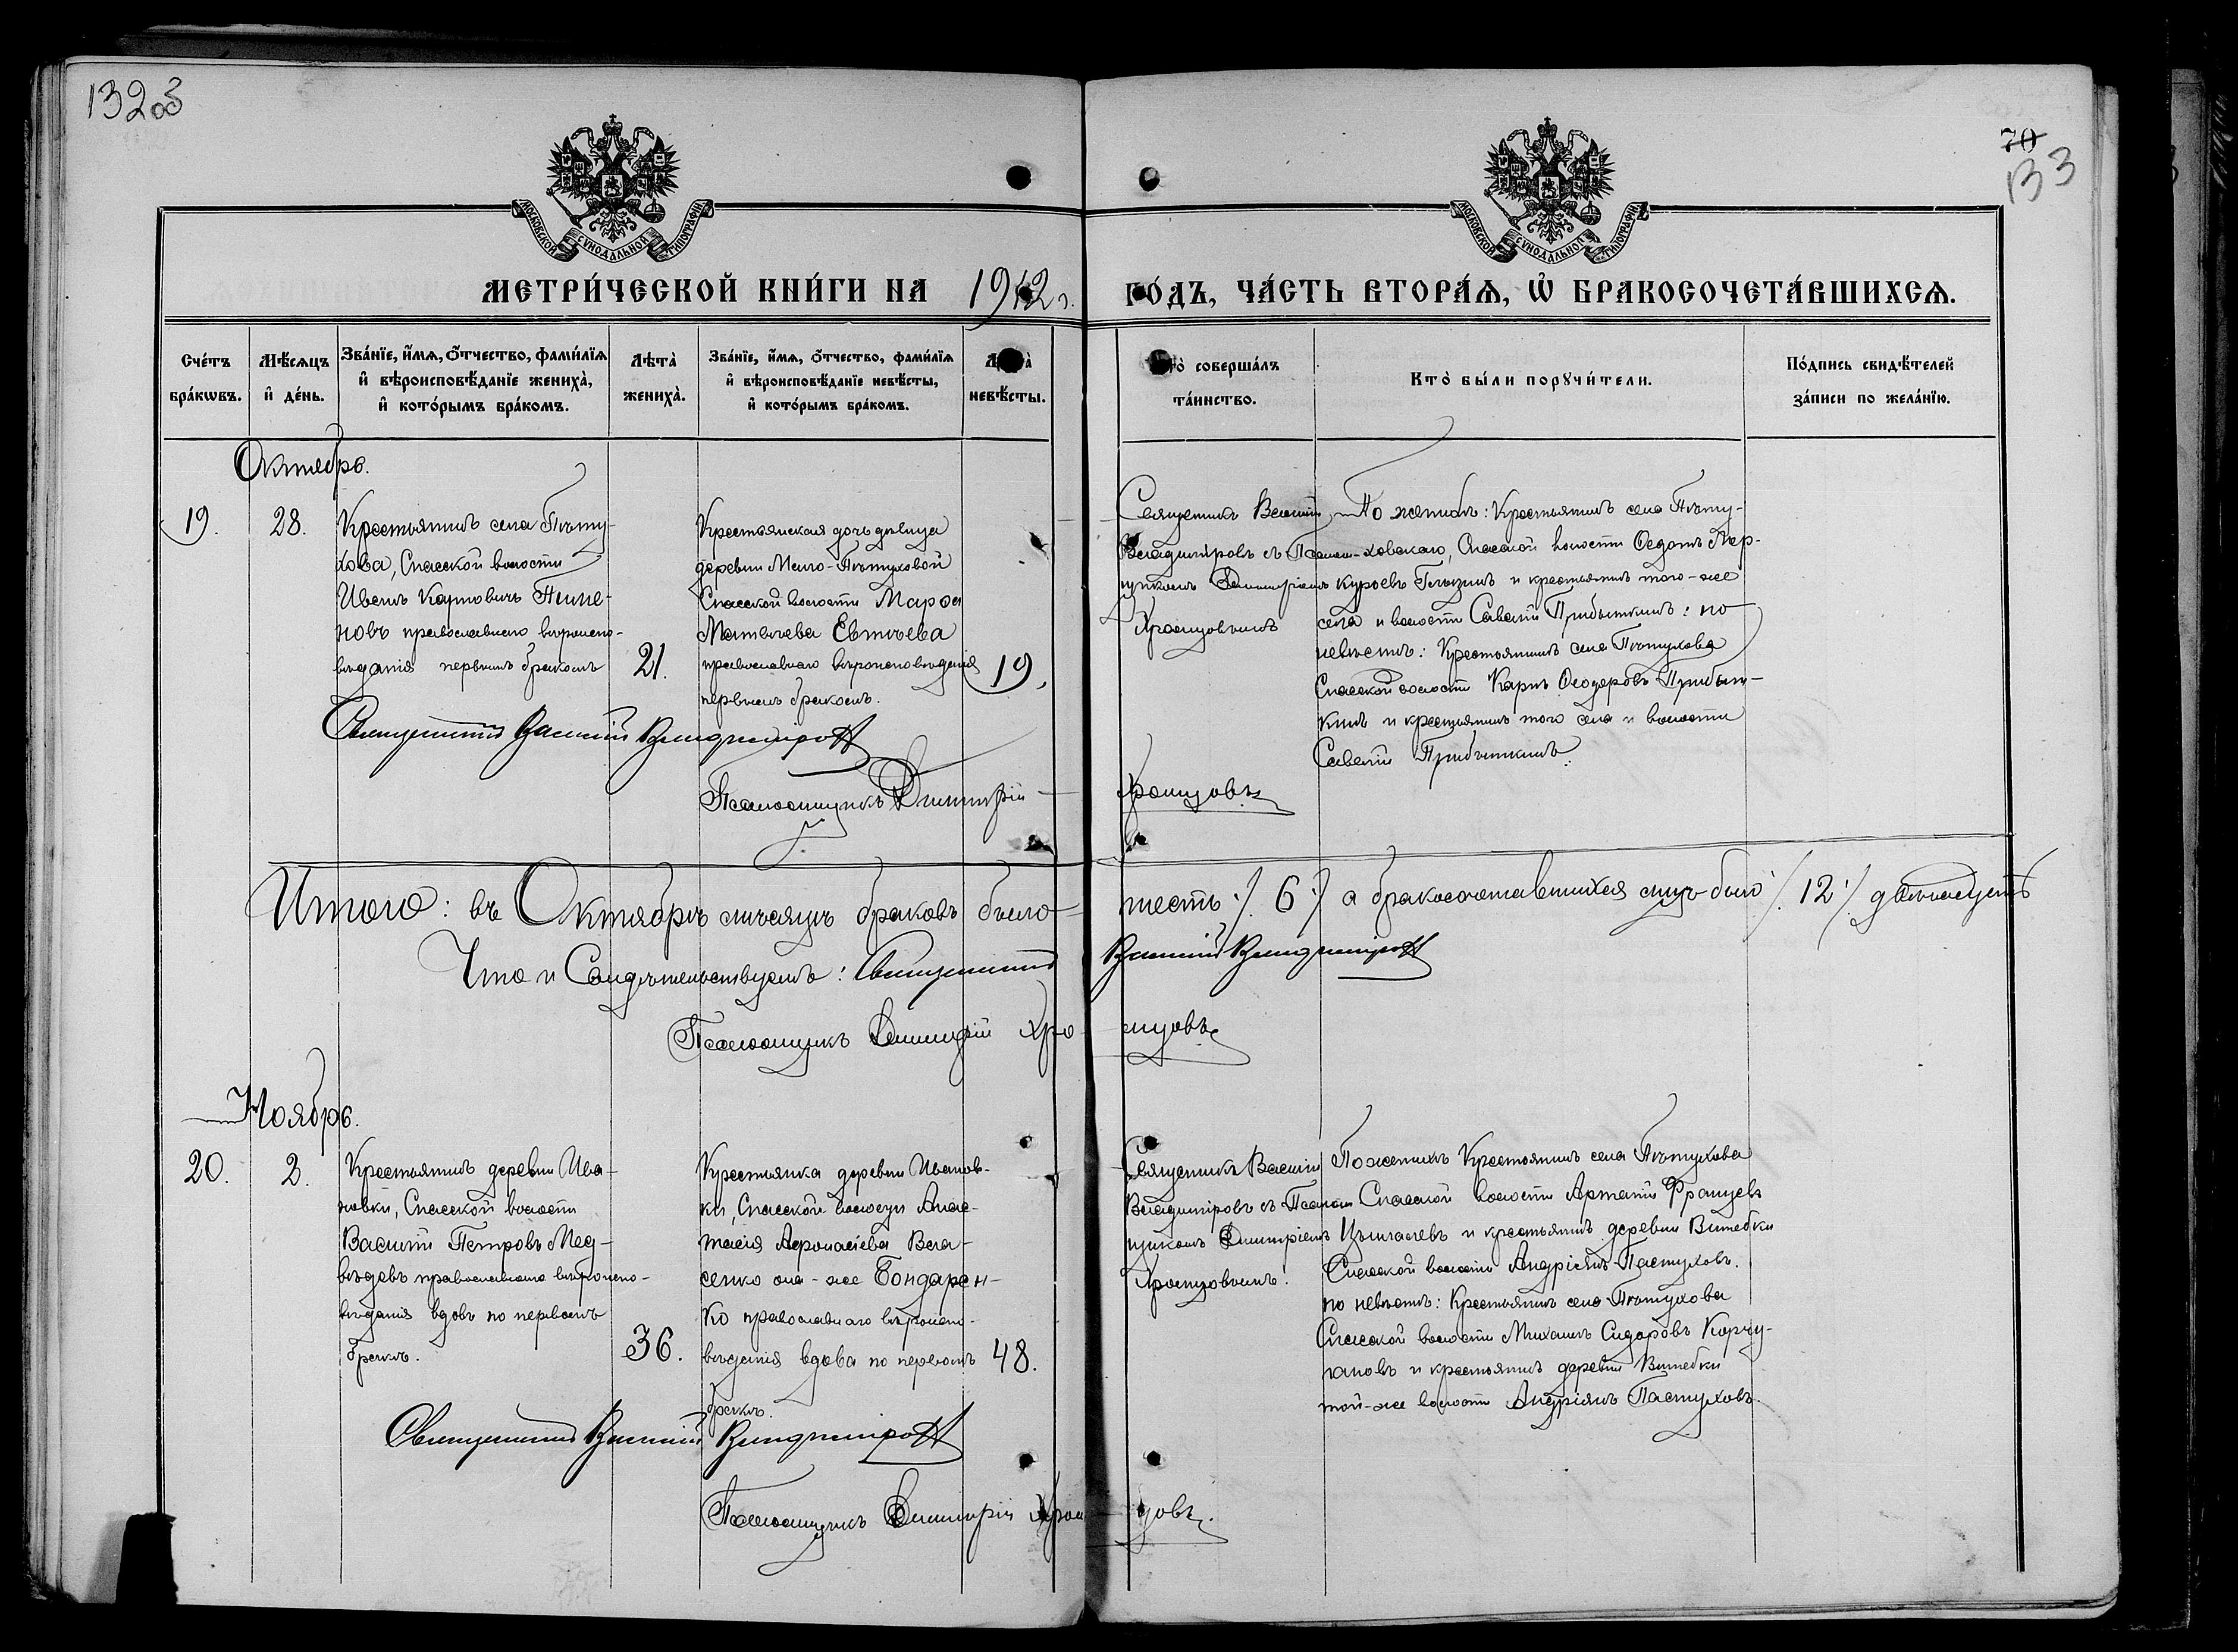 132об
70
133
МОСКОВСКОЙ СѴНОДАЛЬНОЙ ТИПОГРАФІИ
МОСКОВСКОЙ СѴНОДАЛЬНОЙ ТИПОГРАФІИ
МЕТРИ́ЧЕСКОЙ КНИ́ГИ НА 1912 г.
ГО́ДЪ, ЧА́СТЬ ВТОРА́Ѧ, Ѡ҆ БРАКОСОЧЕТА́ВШИХСѦ.
Сче́тъ
бра́кѡвъ.
Мѣ́сѧцъ
и҆ де́нь.
Зва́нїе, и҆́мѧ, ѻ҆́тчество, фами́лїѧ
и҆ вѣроисповѣ́данїе жениха̀,
и҆ кото́рымъ бра́комъ.
Лѣта̀
жениха̀.
Зва́нїе, и҆́мѧ, ѻ҆́тчество, фами́лїѧ
и҆ вѣроисповѣ́данїе невѣ́сты,
и҆ кото́рымъ бра́комъ.
Лѣта̀
невѣ́сты.
Кто̀ соверша́лъ
та́инство.
Кто̀ бы́ли порꙋчи́тели.
По́дпись свидѣ́телей
за́писи по жела́нїю.
Октябрь.
19.
28.
Крестьянинъ села Пѣту-
хова, Спасской волости
Иванъ Карповичъ Пиме-
новъ православнаго вѣроиспо-
вѣданія первымъ бракомъ
21.
Крестьянская дочь дѣвица
деревни Мало-Пѣтуховой
Спасской волости Марѳа
Матвѣева Евтѣева
православнаго вѣроисповѣданія
первымъ бракомъ.
19.
Священникъ Василій
Владиміровъ съ Псалом-
щикомъ Димитріемъ
Храмцовымъ
По женихѣ: Крестьянинъ села Пѣту-
ховскаго, Спасской волости Ѳедотъ
Глызинъ и крестьянинъ того-же
села и волости Савелій Прибыткинъ: по
невѣстѣ: Крестьянинъ села Пѣтухова
Спасской волости Карпъ Ѳеодоровъ Прибыт-
кинъ и крестьянинъ того села и волости
Савелій Прибыткинъ.
Священникъ Василій Владиміровъ
Псаломщикъ Димитрій Храмцовъ
Итого: въ Октябрѣ мѣсяцѣ браковъ было шесть /.6./ а бракосочетавшихся лицъ было /.12./ двѣнадцать
Что и Свидѣтельствуемъ: Священникъ Василій Владиміровъ
Псаломщикъ Димитрій Храмцовъ
Ноябрь.
20.
2.
Крестьянинъ деревни Ива-
новки, Спасской волости
Василій Петровъ Мед-
вѣдевъ православнаго вѣроиспо-
вѣданія вдовъ по первомъ
бракѣ.
36.
Крестьянка деревни Иванов-
ки, Спасской волости Анас-
тасія Аѳонасіева Вла-
сенко она-же Бондарен-
ко православнаго вѣроиспо-
вѣданія вдова по первомъ
бракѣ.
48.
Священникъ Василій
Владиміровъ съ Псалом
щикомъ Димитріемъ
Храмцовымъ.
По женихѣ Крестьянинъ села Пѣтухова
Спасской волости Артамъ Францевъ
и крестьянинъ деревни Витебки
Спасской волости Андріянъ Пастуховъ.
по невѣстѣ: Крестьянинъ села Пѣтухова
Спасской волости Михаилъ Сидоровъ Корчу-
гановъ и крестьянинъ деревни Витебки
той-же волости Андріянъ Пастуховъ.
Священникъ Василій Владиміровъ
Псаломщикъ Димитрій Храмцовъ.